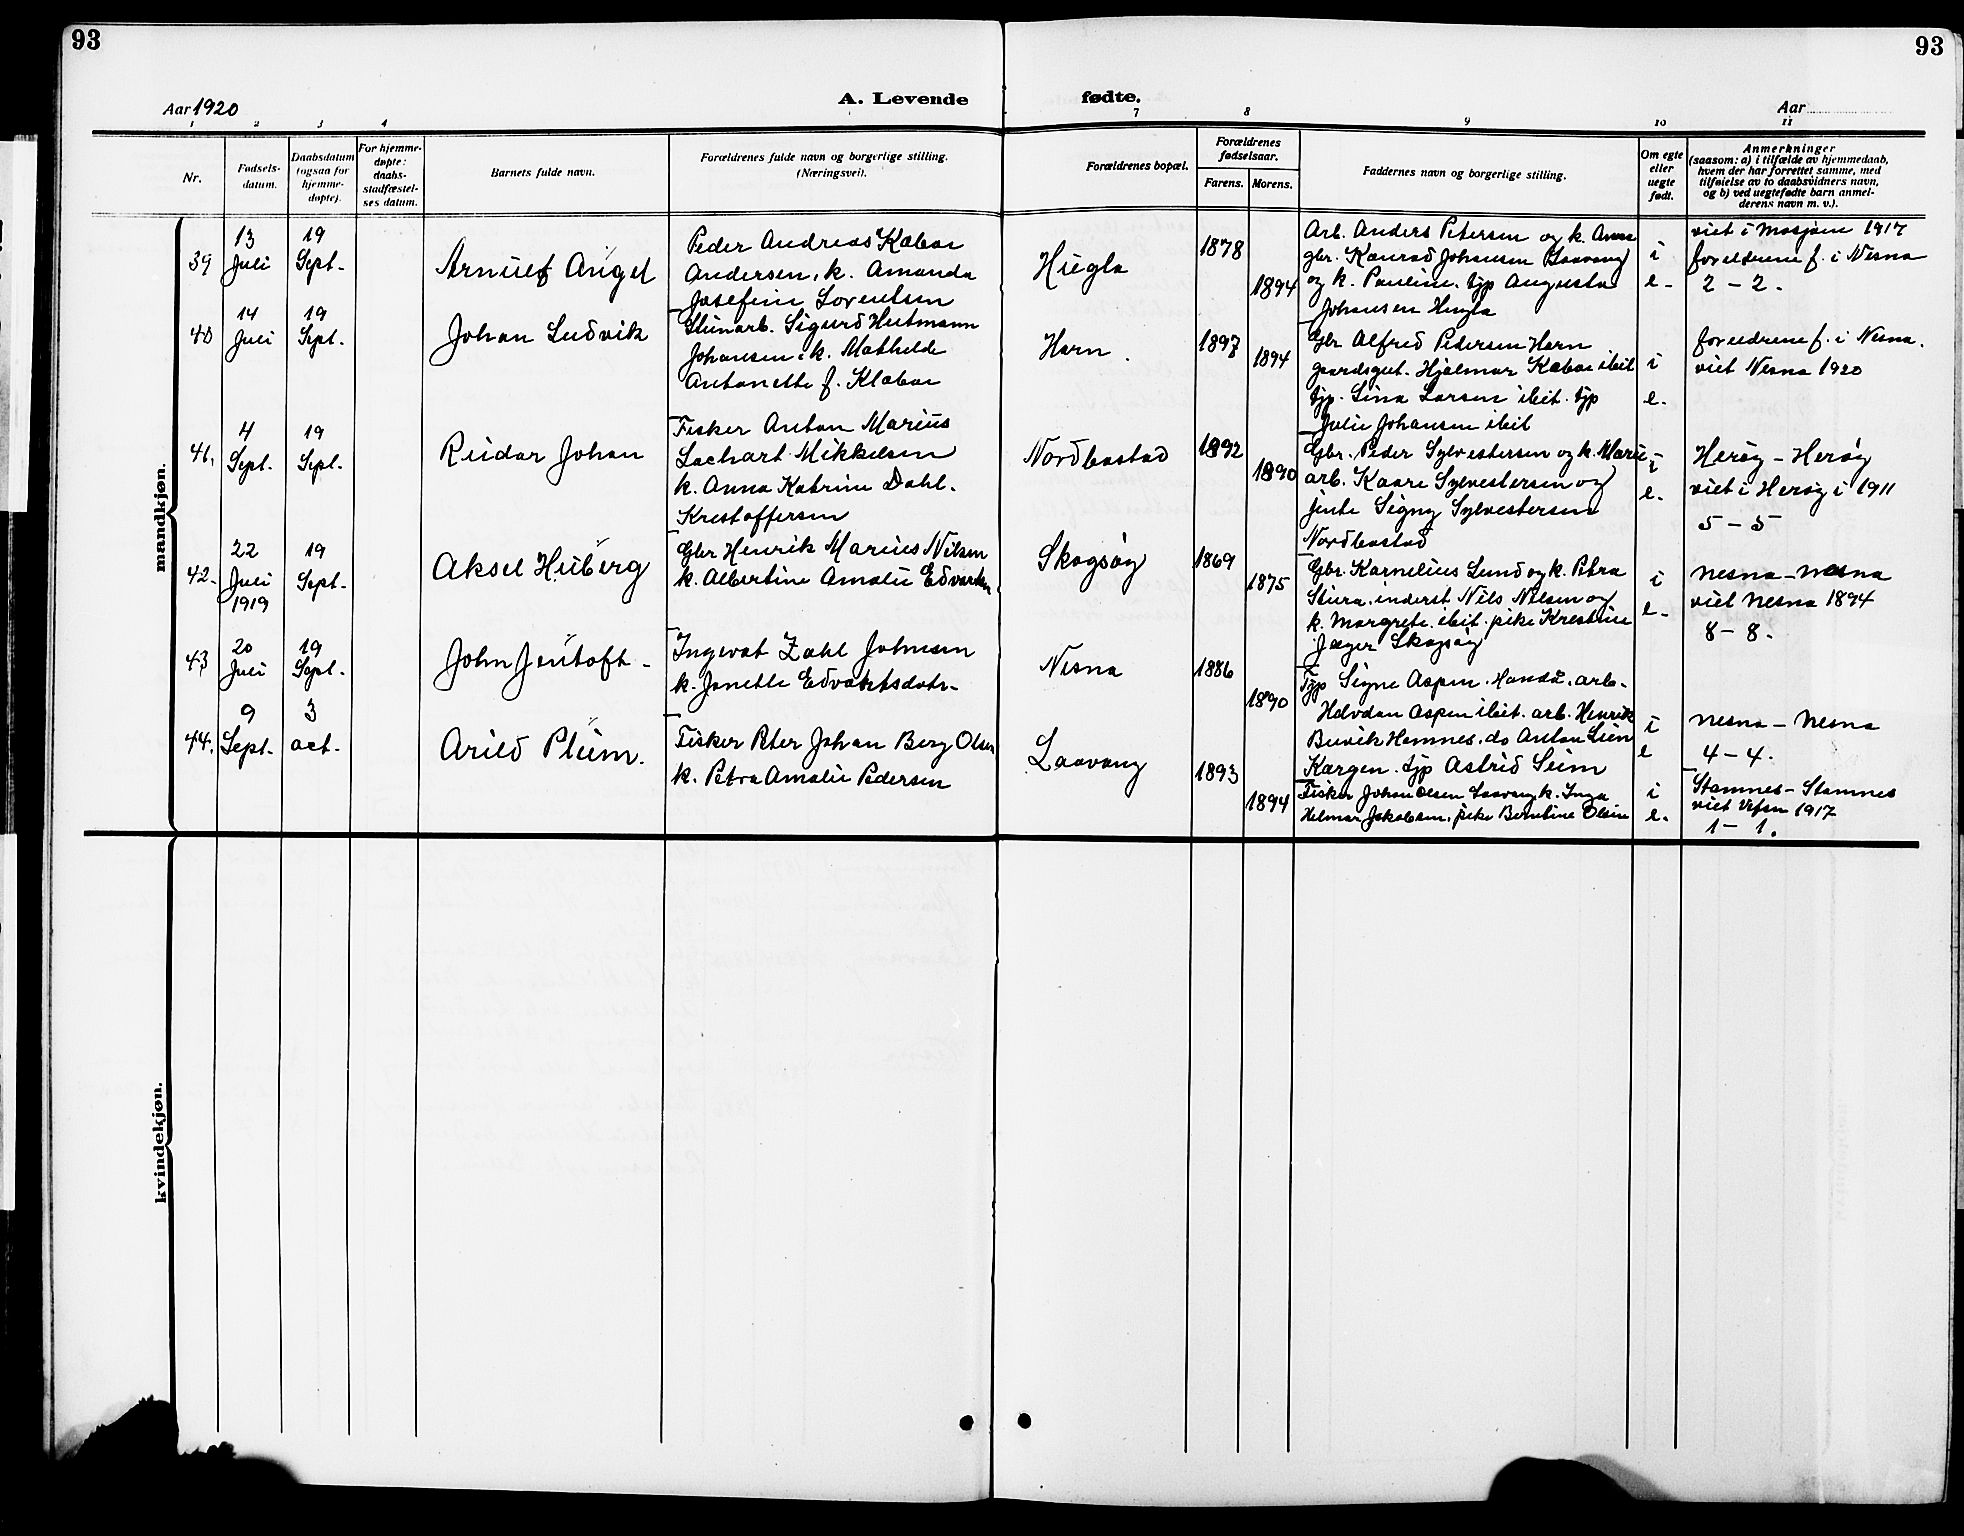 93
93
Aar 1920
A. Levende
fødte.
Aar
1 2 3 4 7 8 9 10 11
Nr.
Fødsels-
datum.
Daabsdatum
(ogsaa for
hjemme-
døpte).
For hjemme-
døpte:
daabs-
stadfæstel-
ses datum.
Barnets fulde navn.
Forældrenes fulde navn og borgerlige stilling.
(Næringsvei).
Forældrenes bopæl.
Forældrenes
fødselsaar.
Farens. Morens.
Faddernes navn og borgerlige stilling.
Om egte
eller
uegte
født.
Anmerkninger
(saasom: a) i tilfælde av hjemmedaab,
hvem der har forrettet samme, med
tilføielse av to daabsvidners navn,
og b) ved uegtefødte barn anmel-
derens navn m. v.).
mandkjøn.
39
13
Juli
19
Sept.
Arnulf Angel
Peder Andreas Kabær
Andersen, k. Amanda
Josefine Lorentsen
Hugla
1878
1894
Arb. Anders Petersen og k. Anna
gbr. Konrad Johansen Laavang
og k. Pauline. tjp Augusta
Johansen Hugla
i
e.
viet i Mosjøen 1917
forældrene f. i Nesna
2 - 2.
40
14
Juli
19
Sept.
Johan Ludvik
Stenarb. Sigurd Hutmann
Johansen, k. Mathelde
Antonette f. Klabar
Horn.
1897
1894
Gbr Alfred Pedersen Horn
gaardsgut. Hjalmar Kabær ibit
tjp. Lina Larsen ibit. tjp
Julie Johansen ibit
i
e.
forældrene f. i Nesna.
viet Nesna 1920
41.
4
Sept.
19
Sept.
Reidar Johan
Fisker Anton Marius
Lachart Mikkelsen
k. Anna Katrine Dahl.
Kristoffersen
Nordbostad
1892
1890
Gbr. Peder Sylvestersen og k. Marie
arb. Kaare Sylvestersen og
jente Signy Sylvestersen
Nordbostad
i
e.
Herøy - Herøy
viet i Herøy i 1911
5 - 5
42.
22
Juli
1919
19
Sept.
Aksel Huberg
Gbr Henrik Marius Nilsen
k. Albertine Amalie Edvartsen
Skogsøy
1869
1875
Gbr. Karnelius Lund og k. Petra
Stura. inderst Nils Nilsen og
k. Margrete. ibit. pike Krestine
Jæger Skogsøy
i
e.
Nesna - Nesna
viet Nesna 1894
8 - 8.
43
20
Juli
19
Sept.
John Jentoft
Ingevat Zahl Johnsen
k. Janette Edvartsdatr.
Nesna
1886
1890
Tjp Signe Aspen. Handå. arb.
Halvdan Aspen ibit. arb. Henrik
Buvik Hamnes. do Anton Lien
Kargen. tjp Astrid Seim
i
e
Nesna - Nesna
4 - 4.
44.
9
Sept.
3
oct.
Arild Plum.
Fisker Peter Johan Berg Olsen
k. Petra Amalie Pedersen
Laavang
1893
1894
Fisker Johan Olsen Laavang k. Inga
Helmar Jakobsen, pike Berntine Olsen
i
e.
Stamnes - Stamnes
viet Vefsn 1917
1 - 1.
kvindekjøn.